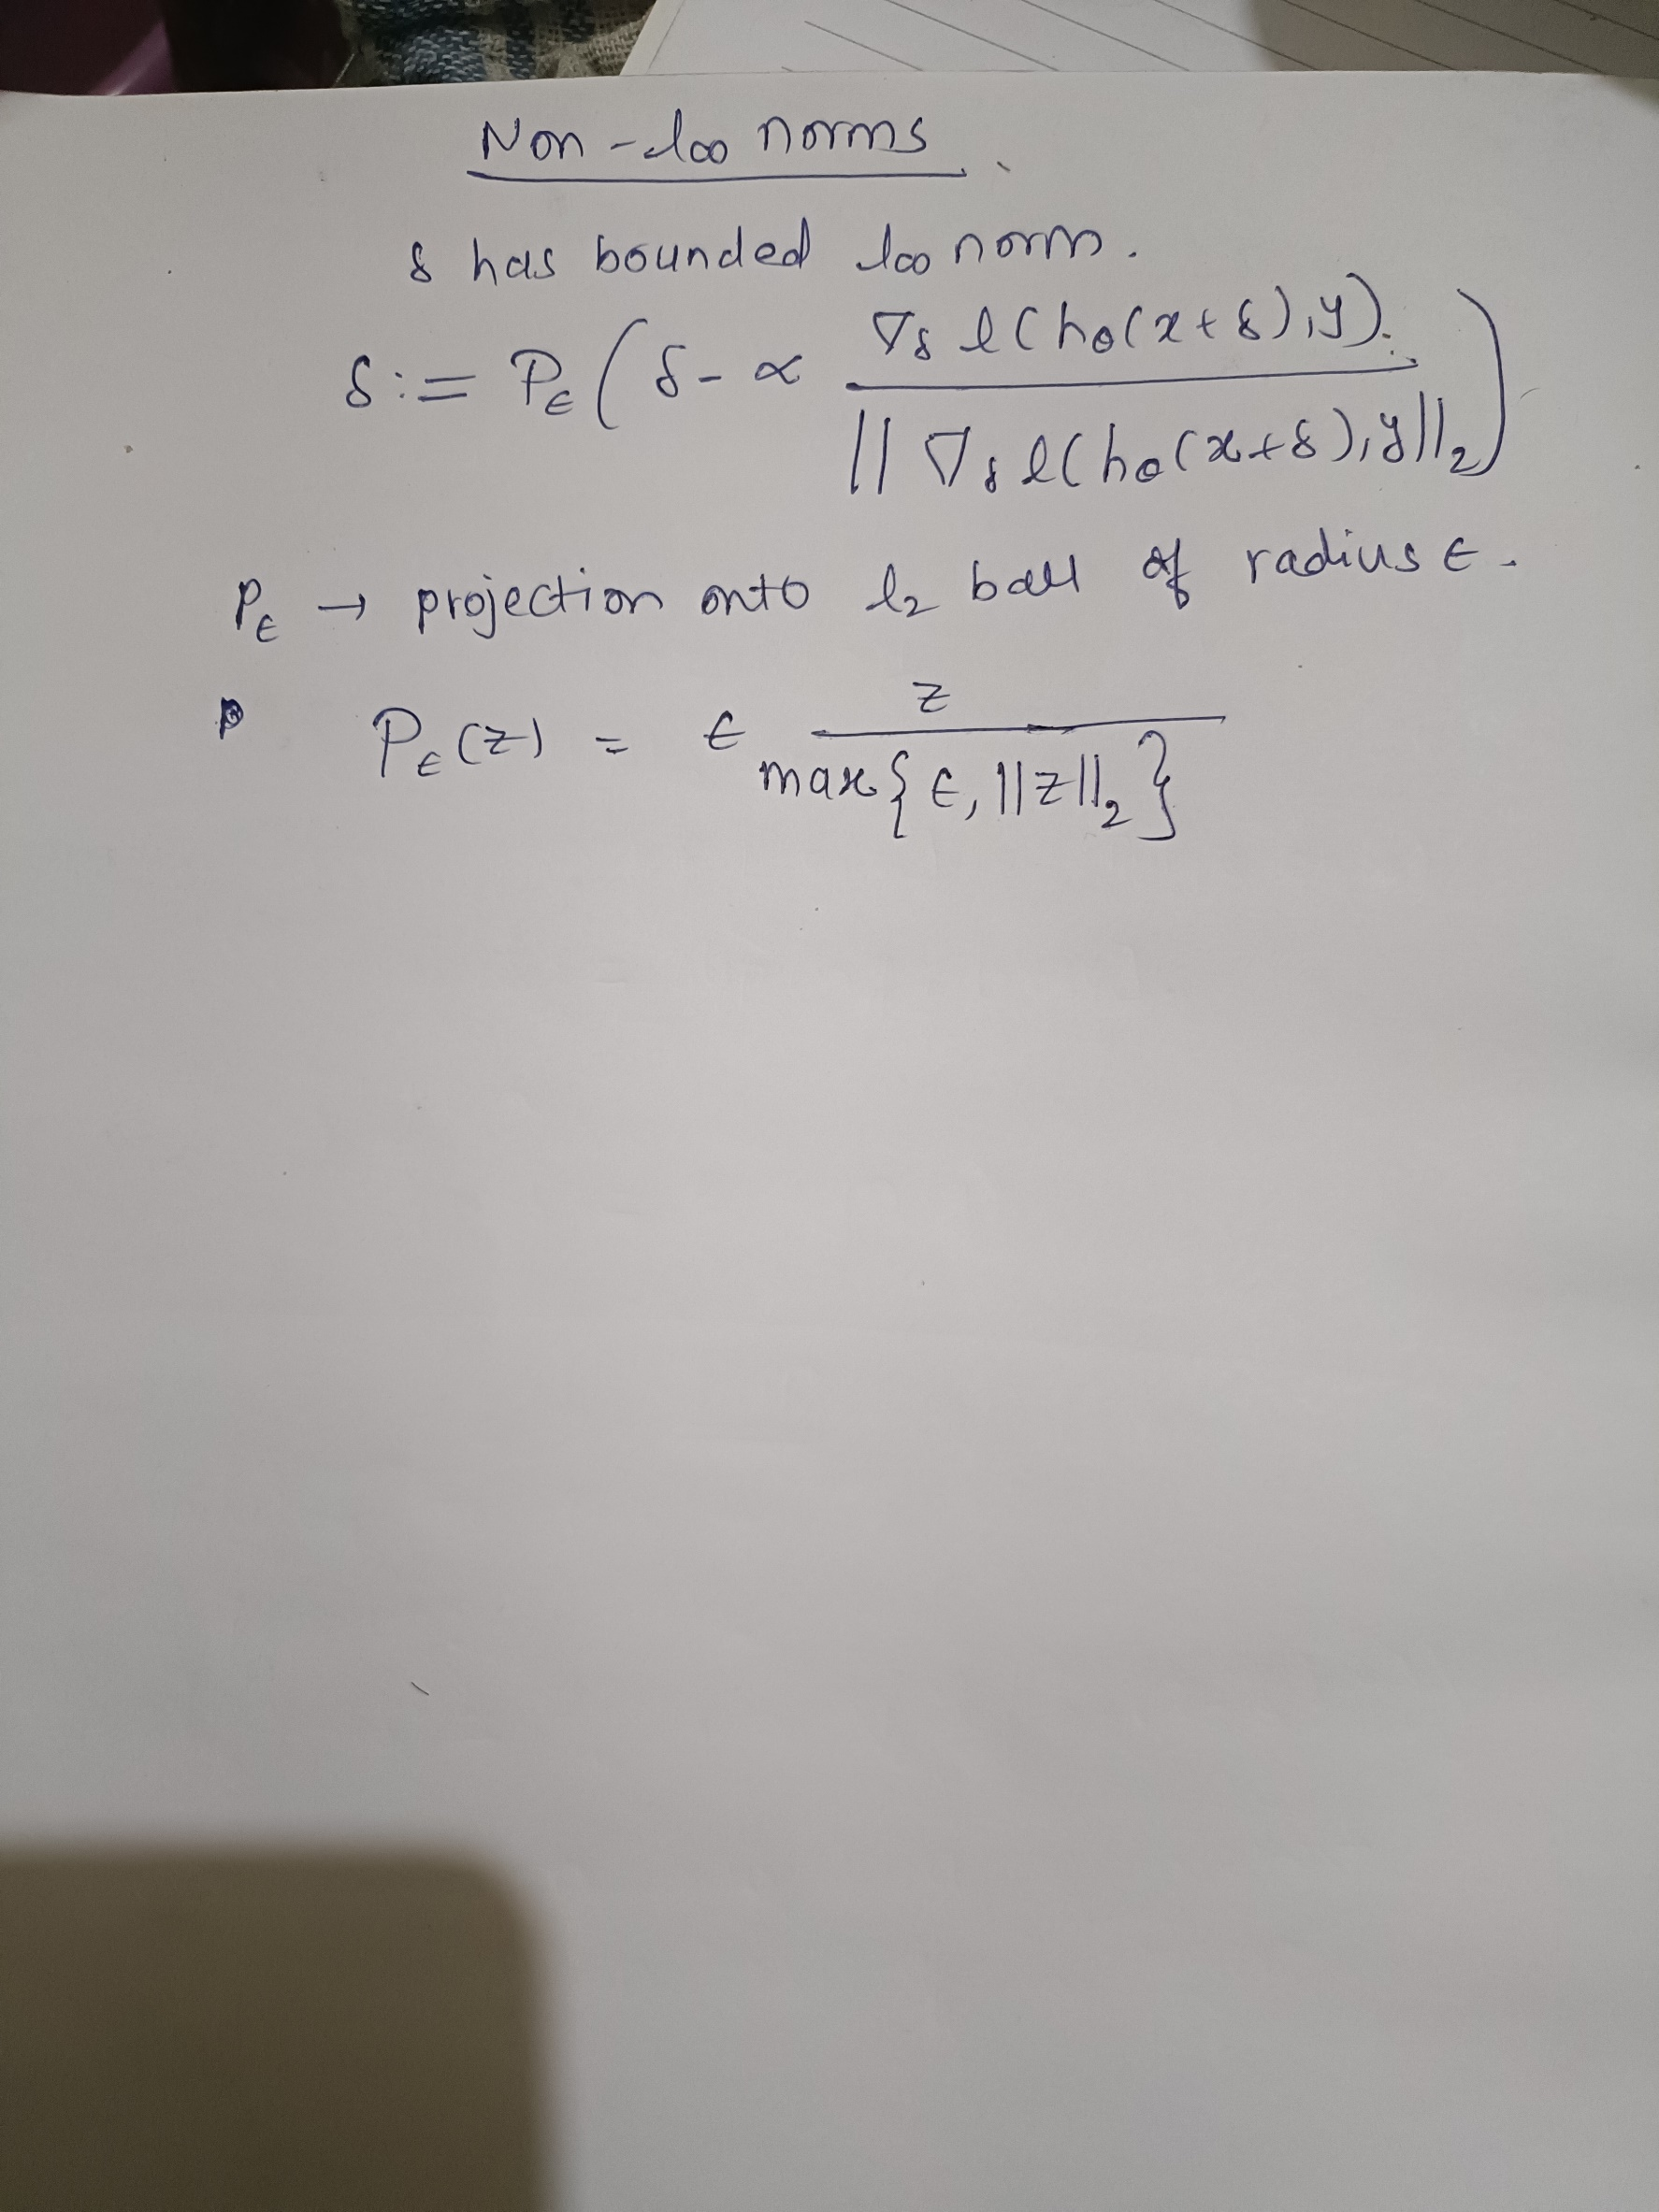 Non-l∞ norms
δ has bounded l∞ norm.
δ := P_ϵ ( δ - α ∇_δ l(h_θ(x+δ),y) / ||∇_δ l(h_θ(x+δ),y||_2 )
P_ϵ → projection onto l_2 ball of radius ϵ.
P_ϵ(z) = ϵ z / max{ϵ, ||z||_2}